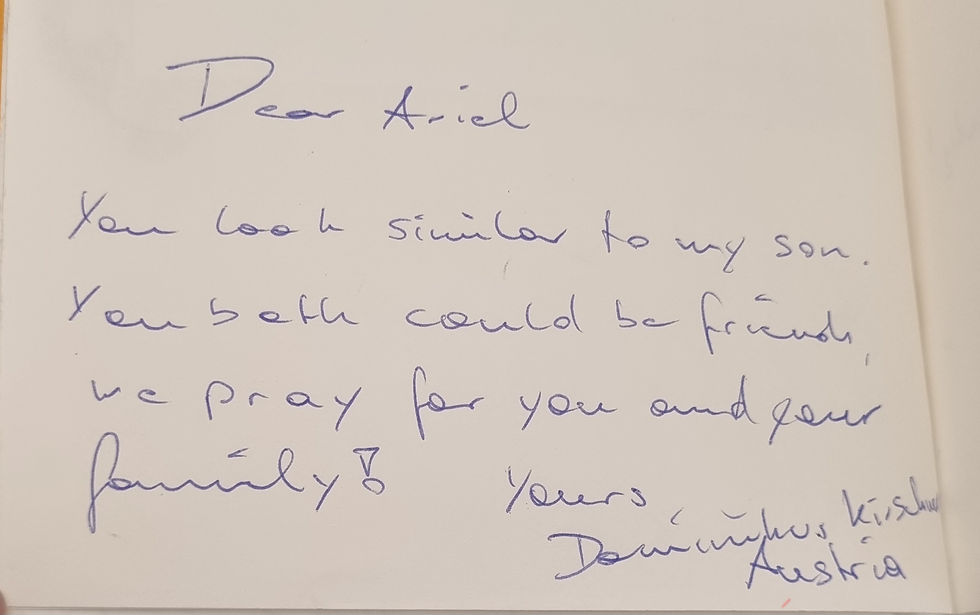 Dear Ariel
You look similar to my son.
You both could be friends,
we pray for you and your
family!
Yours,
Dominikus
Austria